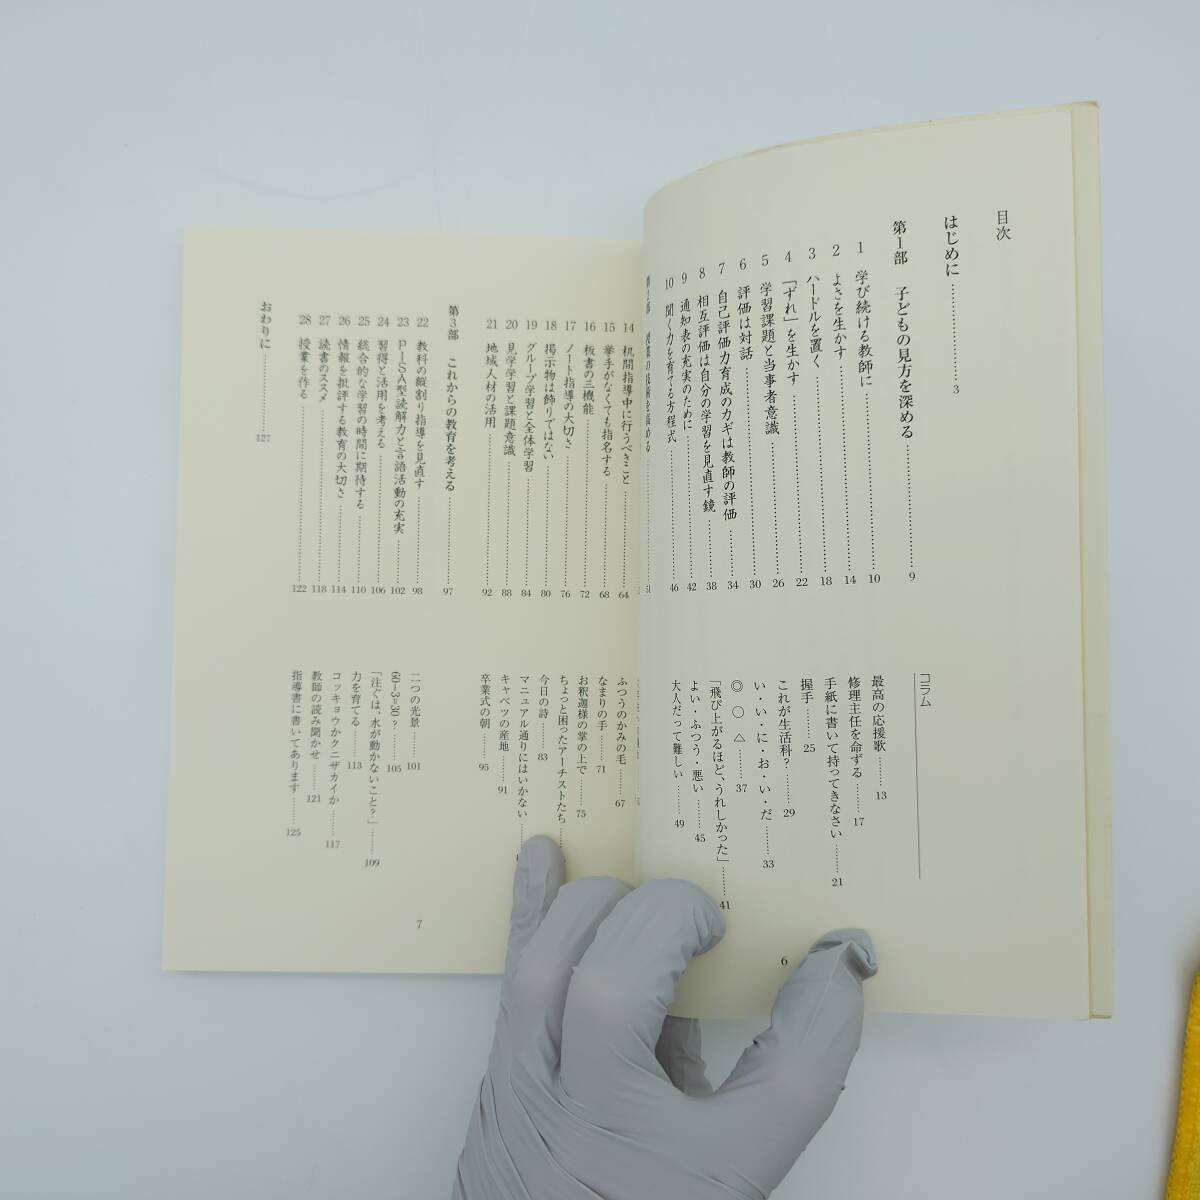 目次
はじめに……………3
第1部 子どもの見方を深める……………9
1 学び続ける教師に……………10
2 よさを生かす……………14
3 ハードルを置く……………18
4 「ずれ」を生かす……………22
5 学習課題と当事者意識……………26
6 評価は対話……………30
7 自己評価力育成のカギは教師の評価……………34
8 相互評価は自分の学習を見直す鏡……………38
9 通知表の充実のために……………42
10 聞く力を育てる方程式……………46
コラム
最高の応援歌………13
修理主任を命ずる………17
手紙に書いて持ってきなさい………21
握手………25
これが生活科?………29
い・い・に・お・い・だ………33
◎ ○ △………37
「飛び上がるほど、うれしかった」………41
よい・ふつう・悪い………45
大人だって難しい………49
6
14 机間指導中に行うべきこと……………64
15 挙手がなくても指名する……………68
16 板書の三機能……………72
17 ノート指導の大切さ……………76
18 掲示物は飾りではない……………80
19 グループ学習と全体学習……………84
20 見学学習と課題意識……………88
21 地域人材の活用……………92
第3部 これからの教育を考える……………97
22 教科の縦割り指導を見直す……………98
23 PISA型読解力と言語活動の充実……………102
24 習得と活用を考える……………106
25 総合的な学習の時間に期待する……………110
26 情報を批評する教育の大切さ……………114
27 読書のススメ……………118
28 授業を作る……………122
おわりに……………127
ふつうのかみの毛………67
なまりの手………71
お釈迦様の掌の上で………75
ちょっと困ったアーチストたち………
今日の詩………83
マニュアル通りにはいかない………
キャベツの産地………91
卒業式の朝………95
二つの光景………101
60−3=30?………105
「注ぐは、水が動かないこと?」………109
力を育てる………113
コッキョウかクニザカイか………117
教師の読み聞かせ………121
指導書に書いてあります………125
7